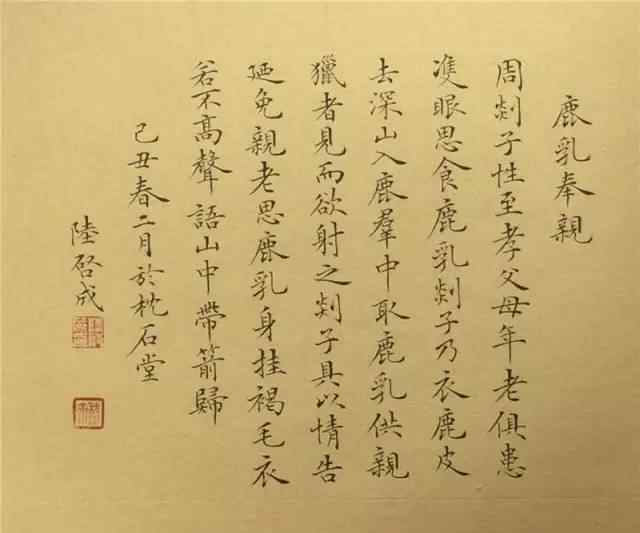 鹿乳奉親
周剡子性至孝父母年老俱患
雙眼思食鹿乳剡子乃衣鹿皮
去深山入鹿羣中取鹿乳供親
獵者見而欲射之剡子具以情告
廼免親老思鹿乳身挂褐毛衣
若不高聲語山中帶箭歸
己丑春二月於枕石堂
陸啓成